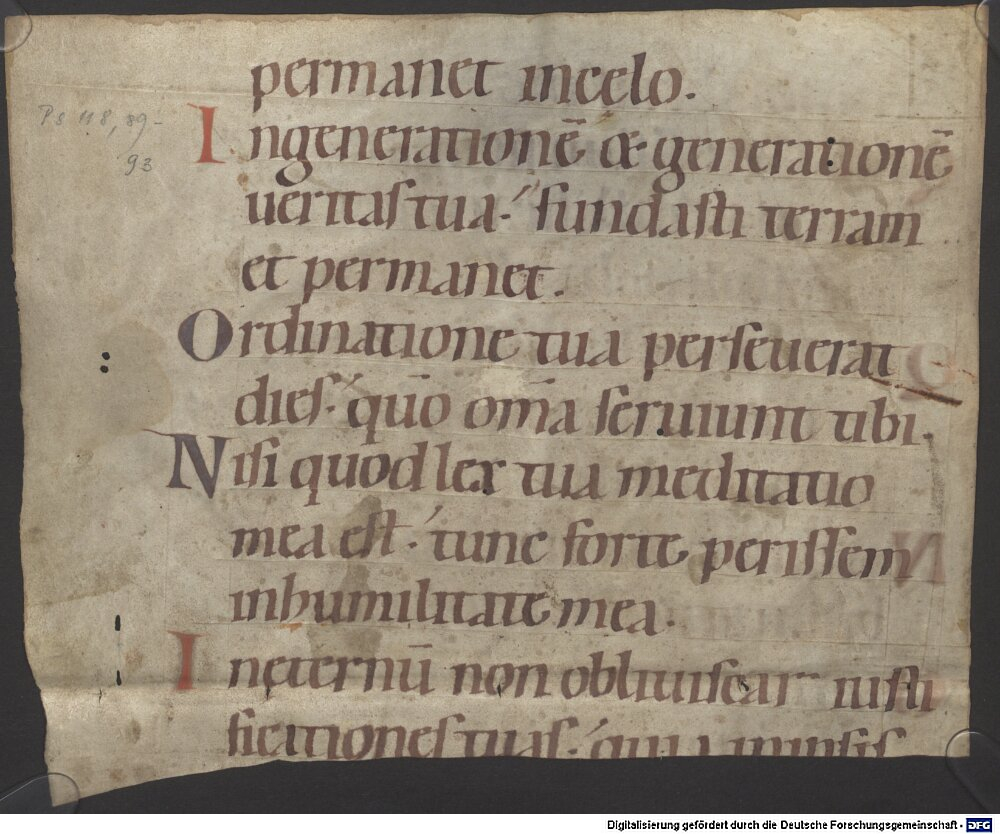 permanet incelo.
Ps 118, 89-
93
Ingenerationē & generationē
ueritas tua. fundasti terram
et permanet.
Ordinatione tua perseuerat
dies. quō om̄a seruiunt tibi.
Nisi quod lex tua meditatio
mea est. tunc forte perissem
inhumilitate mea.
Ineternū non obliuiscar iusti
ficationes tuas. quia inipsis
Digitalisierung gefördert durch die Deutsche Forschungsgemeinschaft - DFG